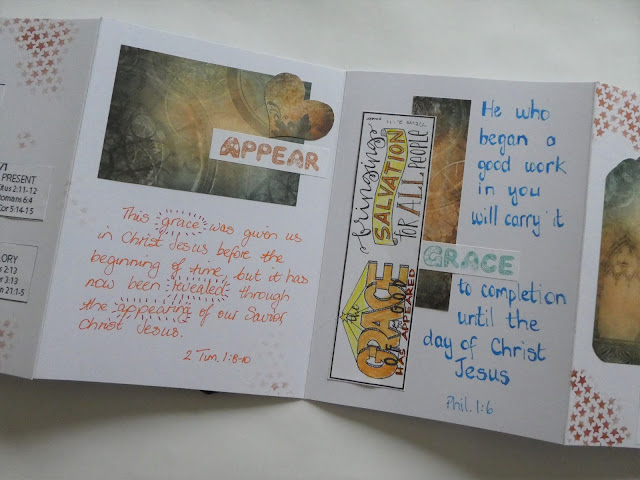 PRESENT
Titus 2:11-12
Romans 6:4
Cor 5:14-15
LORY
2:13
3:13
21:1-5
APPEAR
This grace was given us
in Christ Jesus before the
beginning of time, but it has
now been revealed through
the appearing of our Savior
Christ Jesus.
2 Tim. 1:8-10
bringing
SALVATION
for ALL PEOPLE
the GRACE
OF GOD
HAS APPEARED
He who
began a
good work
in you
will carry it
GRACE
to completion
until the
day of Christ
Jesus
Phil. 1:6